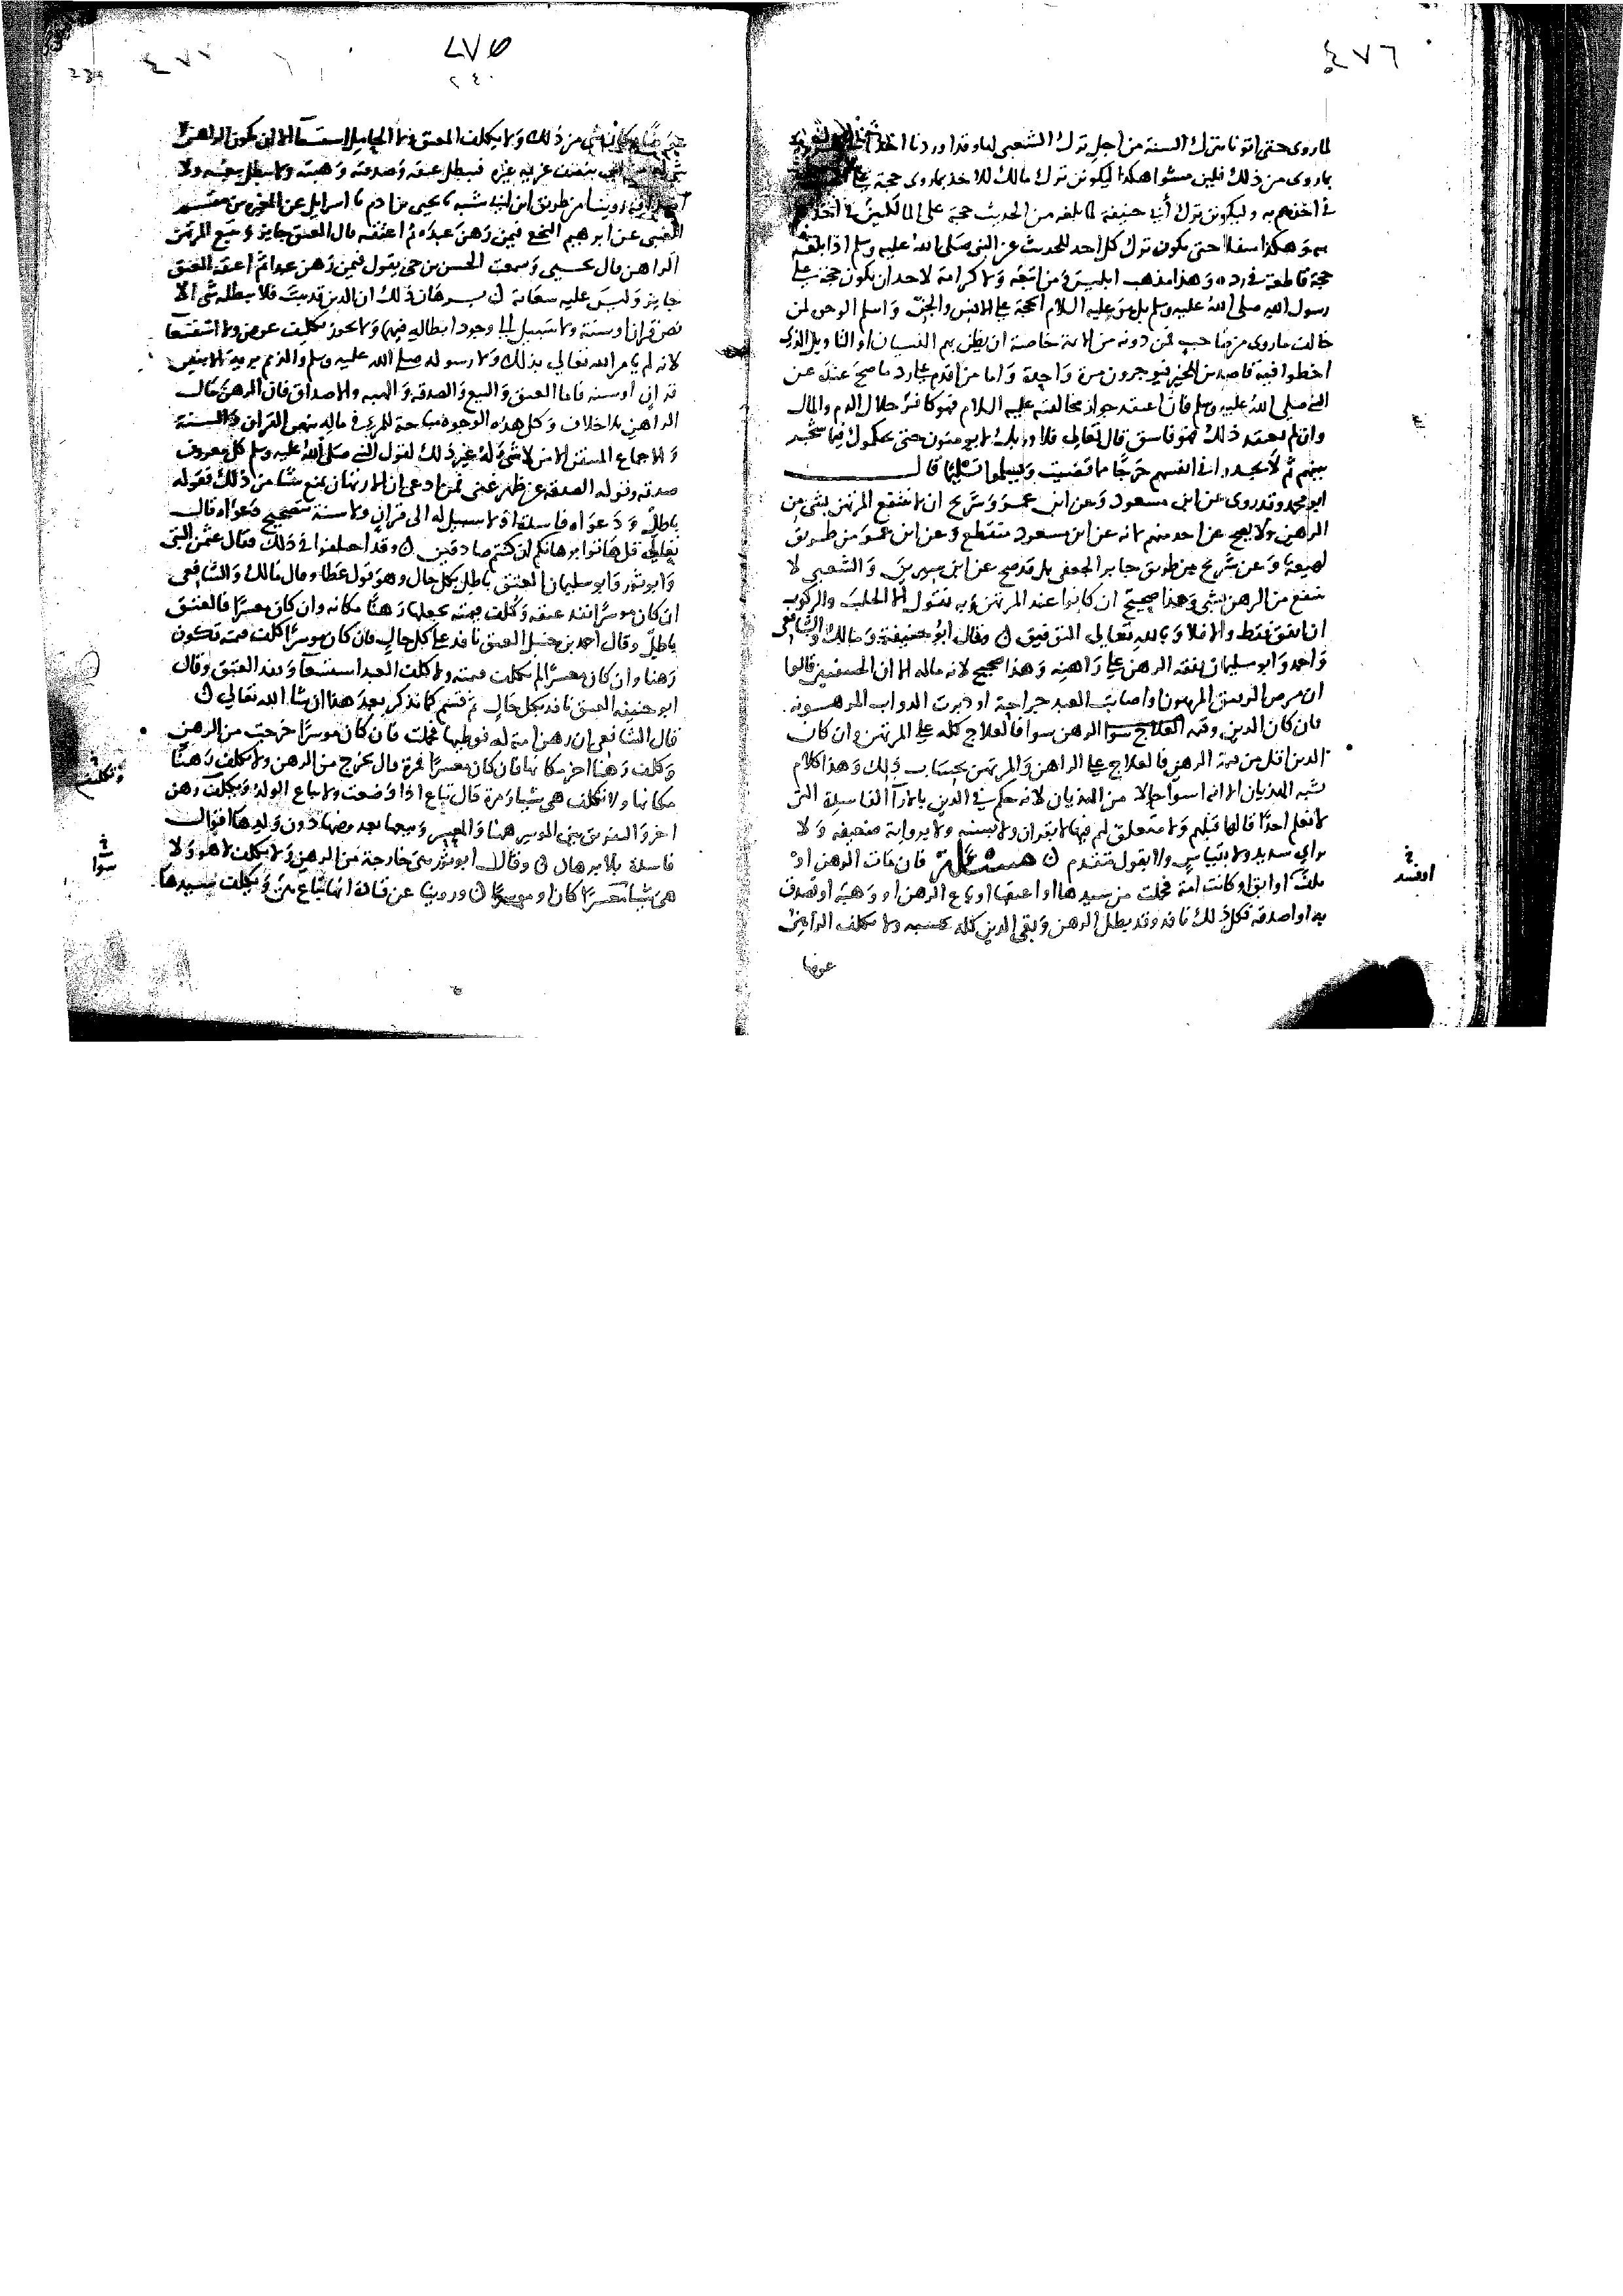 ٤٧٦
لما روى حتى اتونا بترك السنة من اجل ترك الشعبى لها وقد اوردنا اخذ
بما روى من ذلك فلين مشوا هكذا ليكونن ترك مالك للاخذ بما روى حجة على
فى اخذهم به وليكونن ترك أبى حنيفة لما بلغه من الحديث حجة على المالكيين فى اخذهم
به وهكذا سفلا حتى يكون ترك كل احد للحديث عن النبى صلى الله عليه وسلم اذا بلغه
حجة قاطعة فى رده وهذا مذهب ابليس ومن اتبعه ولا كرامة لاحد ان يكون حجة على
رسول الله صلى الله عليه وسلم بل هو عليه السلام الحجة على الانس والجن واسلم الوجوه لمن
خالف ما روى من صاحب فمن دونه من الائمة خاصة ان يظن بهم النسيان او التاويل الذى
اخطوا فيه قاصدين الخير فيوجرون مرة واحدة واما من اقدم على رد ما صح عنده عن
النبى صلى الله عليه وسلم فان اعتقد جواز مخالفته عليه السلام فهو كافر حلال الدم والمال
وان لم يعتقد ذلك فهو فاسق قال تعالى فلا وربك لا يومنون حتى يحكموك فيما شجر
بينهم ثم لا يجدوا فى انفسهم حرجا مما قضيت ويسلموا تسليما قال
ابو محمد وقد روى عن ابن مسعود وعن ابن عمر وشريح ان لا ينتفع المرتهن بشى من
الرهن ولا يصح عن احد منهم لانه عن ابن مسعود منقطع وعن ابن عمر من طريق
لهيعة وعن شريح من طريق جابر الجعفى بلى قد صح عن ابن سيرين والشعبى لا
ينتفع من الرهن بشى وهذا صحيح ان كانوا عند المرتهن وبه نقول الا الحلب والركوب
ان انفق فقط والا فلا وبالله تعالى التوفيق ن وقال ابو حنيفة ومالك والشافعى
واحمد وابو سليمان نفقة الرهن على راهنه وهذا صحيح لانه ماله الا ان الحنفيين قالوا
ان مرض الرهن المرهون او اصابت العبد جراحة او دبرت الدواب المرهونه
فان كان الدين وقيمة الرهن سوا فالعلاج كله على المرتهن وان كان
الدين اقل من قيمة الرهن فالعلاج على الراهن والمرتهن بحساب ذلك وهذا كلام
يشبه الهذيان الا انه اسوا حالا من الهذيان لانه حكم فى الدين بالارآ الفاسدة التى
لا نعلم احدا قالها قبلهم ولا متعلق لهم فيها لا بقران ولا بسنه ولا برواية ضعيفه ولا
براى سديد ولا بقياس ولا بقول متقدم ن مسئلة فان مات الرهن او
تلف او ابق او كانت امة فحملت من سيدها او اعتقها او باع الرهن او وهبه او تصدق
به او اصدقه فكل ذلك نافذ وقد بطل الرهن وبقى الدين كله بحسبه ولا يكلف الراهن
عوضا
او فسد
٤٧٧
٢٤٠
مكان شى من ذلك ولا يكلف المعتق ولا الحامل استسعآ الا ان يكون الراهن لا
شى له من اين ينصف غريمه غيره فيبطل عتقه وصدقته وهبته ولا يبطل بيعه ولا
اصداقه روينا من طريق ابن ابى شيبه نا يحيى بن ادم نا اسرايل عن المغيره بن مقسم
الضبى عن ابرهيم النخعى فيمن رهن عبده ثم اعتقه قال العتق جايز ويتبع المرتهن
الراهن قال يحيى وسمعت الحسن بن حى يقول فيمن رهن عبدا ثم اعتقه العتق
جايز وليس عليه سعاية ن برهان ذلك ان الدين قد ثبت فلا يبطله شى الا
نص قران او سنة ولا سبيل الى وجود ابطاله فيهما ولا يجوز تكليف عوض ولا استسعآ
لانه لم يامر الله تعالى بذلك ولا رسوله صلى الله عليه وسلم والذمم برية الا بنص
قران او سنه فاما العتق والبيع والصدقه والهبه والاصداق فان الرهن مال
الراهن بلا خلاف وكل هذه الوجوه مباحة للمرء فى ماله بنص القران والسنة
والاجماع المتيقن الا من لا شى له غير ذلك لقول النبى صلى الله عليه وسلم كل معروف
صدقه وقوله الصدقه عن ظهر غنى فمن ادعى ان الارتهان يمنع شيا من ذلك فقوله
باطل ودعواه فاسدة اذ لا سبيل له الى قران ولا سنة بتصحيح دعواه قال
تعالى قل هاتوا برهانكم ان كنتم صادقين ن وقد اختلفوا فى ذلك فقال عثمن البتى
وابو ثور وابو سليمان العتق باطل بكل حال وهو قول عطا وقال مالك والشافعى
ان كان موسرا نفذ عتقه وكلف قيمته يجعلها رهنا مكانه وان كان معسرا فالعتق
باطل وقال احمد بن حنبل العتق نافذ على كل حال فان كان موسرا كلف قيمته تكون
رهنا وان كان معسرا لم يكلف قيمته ولا كلف العبد استسعآ ونفذ العتق وقال
ابو حنيفه العتق نافذ بكل حال ثم قسم كما نذكر بعد هذا ان شا الله تعالى ن
قال الشافعى ان رهن امة له فوطيها فحملت فان كان موسرا خرجت من الرهن
وكلف رهنا اخر مكانها فان كان معسرا فمرة قال تخرج من الرهن ولا يكلف رهنا
مكانها ولا تكلف هى شيا ومرة قال تباع اذا وضعت ولا يباع الولد ويكلف رهن
اخر والتفريق بين الموسر هنا والمعسر وبيعها بعد وضعها دون ولدها اقوال
فاسدة بلا برهان ن وقال ابو ثور هى خارجة من الرهن ولا يكلف لا هو ولا
هى شيا معسرا كان او موسرا ن وروينا عن قتادة انها تباع ويكلف سيدها
وتكلف
سوا